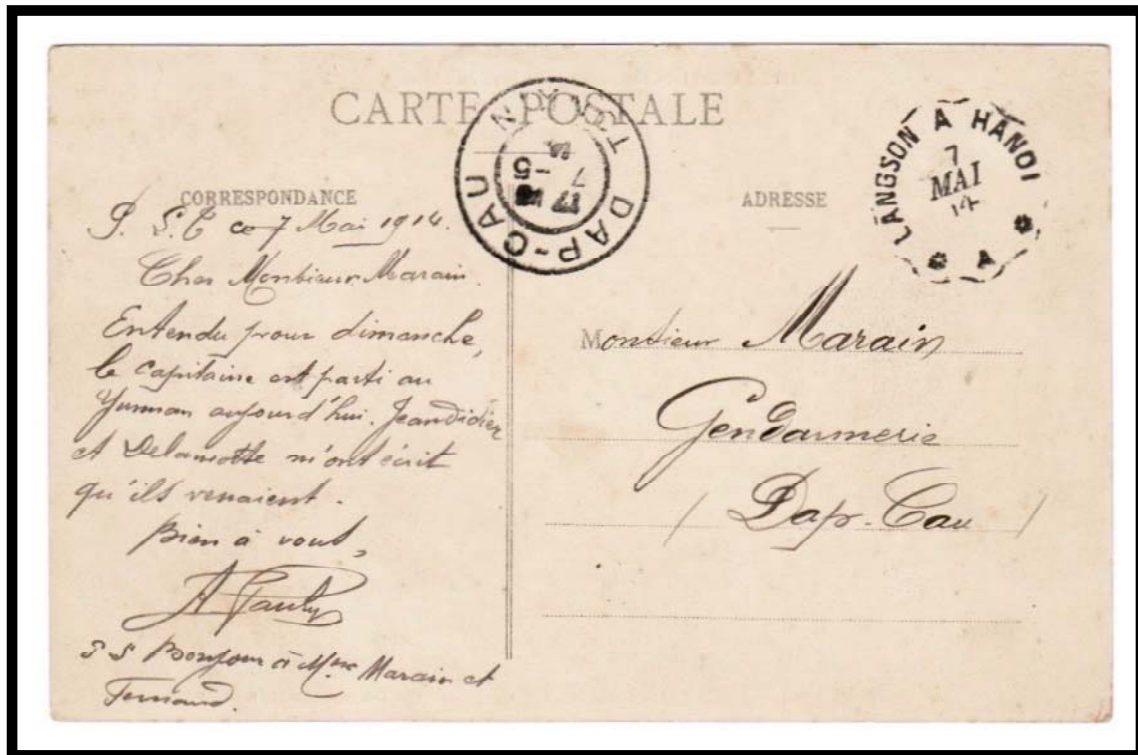 CARTE POSTALE
DAP-CAU
TONKIN
7-5
14
LANGSON A HANOI
7
MAI
14
A
CORRESPONDANCE
ADRESSE
ce 7 Mai 1914.
Cher Monsieur Marain.
Entendu pour dimanche,
le capitaine est parti au
Yunnan aujourd'hui. Jeandidier
et Delamotte m'ont écrit
qu'ils venaient.
Bien à vous,
A Pauly
P S Bonjour à Mme Marain et
Fernand.
Monsieur Marain
Gendarmerie
(Dap-Cau)